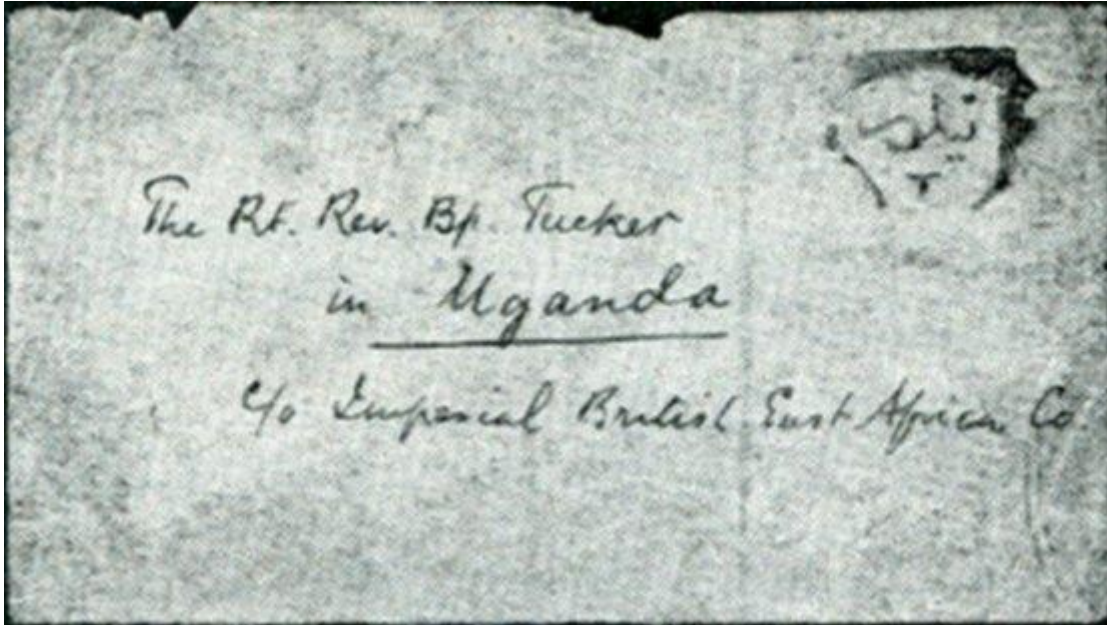 The Rt. Rev. Bp. Tucker
in Uganda
c/o Imperial British East African Co.